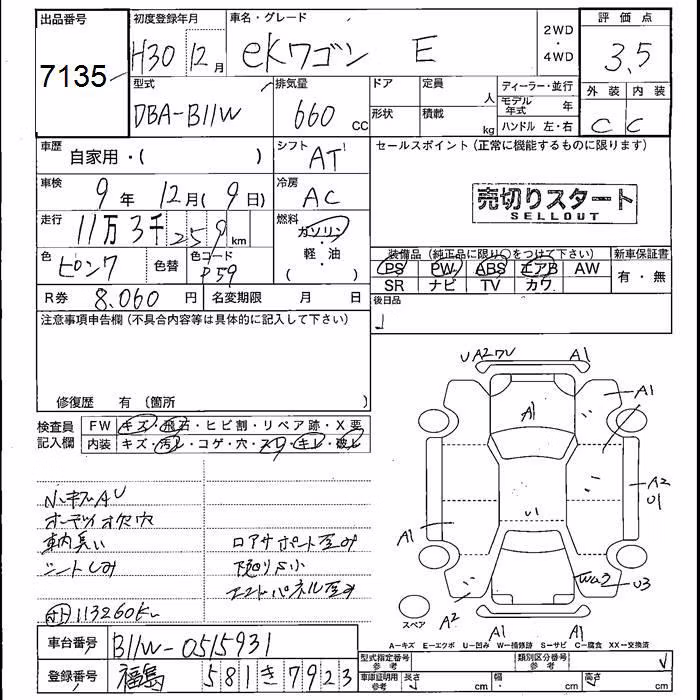 出品番号 初度登録年月 車名・グレード 評価点
7135 H30 12月 eKワゴン E 2WD・4WD 3.5
外装 内装
C C
型式 排気量 ドア 定員 人 ディーラー・並行
DBA-B11W 660 CC 形状 積載 kg モデル年式 年
ハンドル 左・右
車歴 自家用・( ) シフト AT セールスポイント(正常に機能するものに限ります)
車検 9年 12月(9日) 冷房 AC
売切りスタート
SELLOUT
走行 11万3千259km 燃料 ガソリン・軽油( )
色 ピンク 色替 色コード P59
装備品(純正品に限り○をつけて下さい) 新車保証書
PS PW ABS エアB AW 有・無
SR ナビ TV カワ
R券 8.060円 名変期限 月 日 後日品
注意事項申告欄(不具合内容等は具体的に記入して下さい)
修復歴 有(箇所 )
UA2 A1
A1 A1
検査員記入欄 FW キズ・飛石・ヒビ割・リペア跡・X要
内装 キズ・汚れ・コゲ・穴・スリ・キレ・破レ
A2
U1
小キズAU
車内臭い ロアサポート歪み A1 U1
シートしみ
エンドパネル歪み U3
113260km
スペア A2 A1 A1
A=キズ E=エクボ U=凹み W=補修跡 S=サビ C=腐食 XX=交換済
車台番号 B11W-0515931
型式指定番号 参考 類別区分番号 参考
登録番号 福島 581 き 7923
車庫証明用 参考 長さ cm 幅 cm 高さ cm